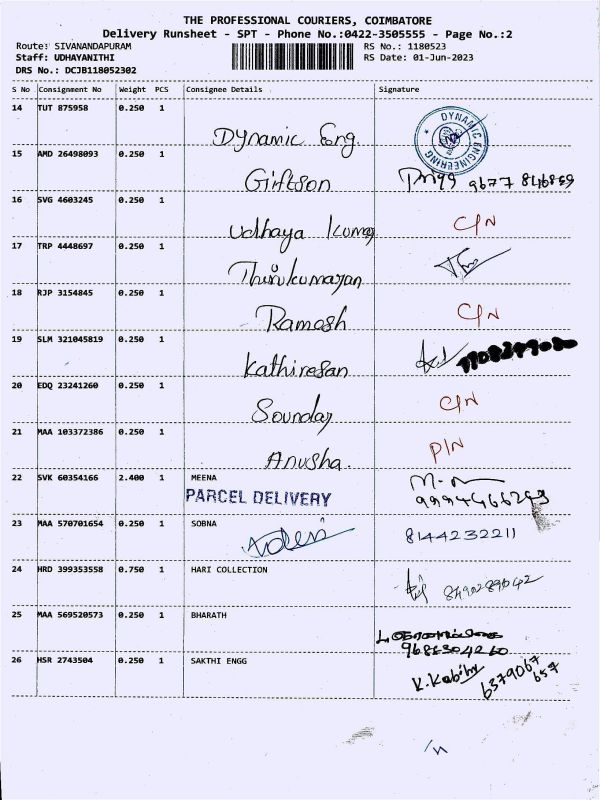 THE PROFESSIONAL COURIERS, COIMBATORE
Delivery Runsheet - SPT - Phone No.:0422-3505555 - Page No.:2
Route: SIVANANDAPURAM
RS No.: 1180523
Staff: UDHAYANITHI
RS Date: 01-Jun-2023
DRS No.: DCJB118052302
S No Consignment No Weight PCS Consignee Details Signature
14 TUT 875958 0.250 1 Dynamic Eng. DYNAMIC ENGINEERING
15 AMD 26498093 0.250 1 Giftson
16 SVG 4603245 0.250 1 Udhaya Kumar C/N
17 TRP 4448697 0.250 1 Thirukumaran
18 RJP 3154845 0.250 1 Ramesh C/N
19 SLM 321045819 0.250 1 Kathiresan
20 EDQ 23241260 0.250 1 Soundar C/N
21 MAA 103372386 0.250 1 Anusha. P/N
22 SVK 60354166 2.400 1 MEENA
PARCEL DELIVERY
23 MAA 570701654 0.250 1 SOBNA 8144232211
24 HRD 399353558 0.750 1 HARI COLLECTION
25 MAA 569520573 0.250 1 BHARATH
26 HSR 2743504 0.250 1 SAKTHI ENGG 6379067
657